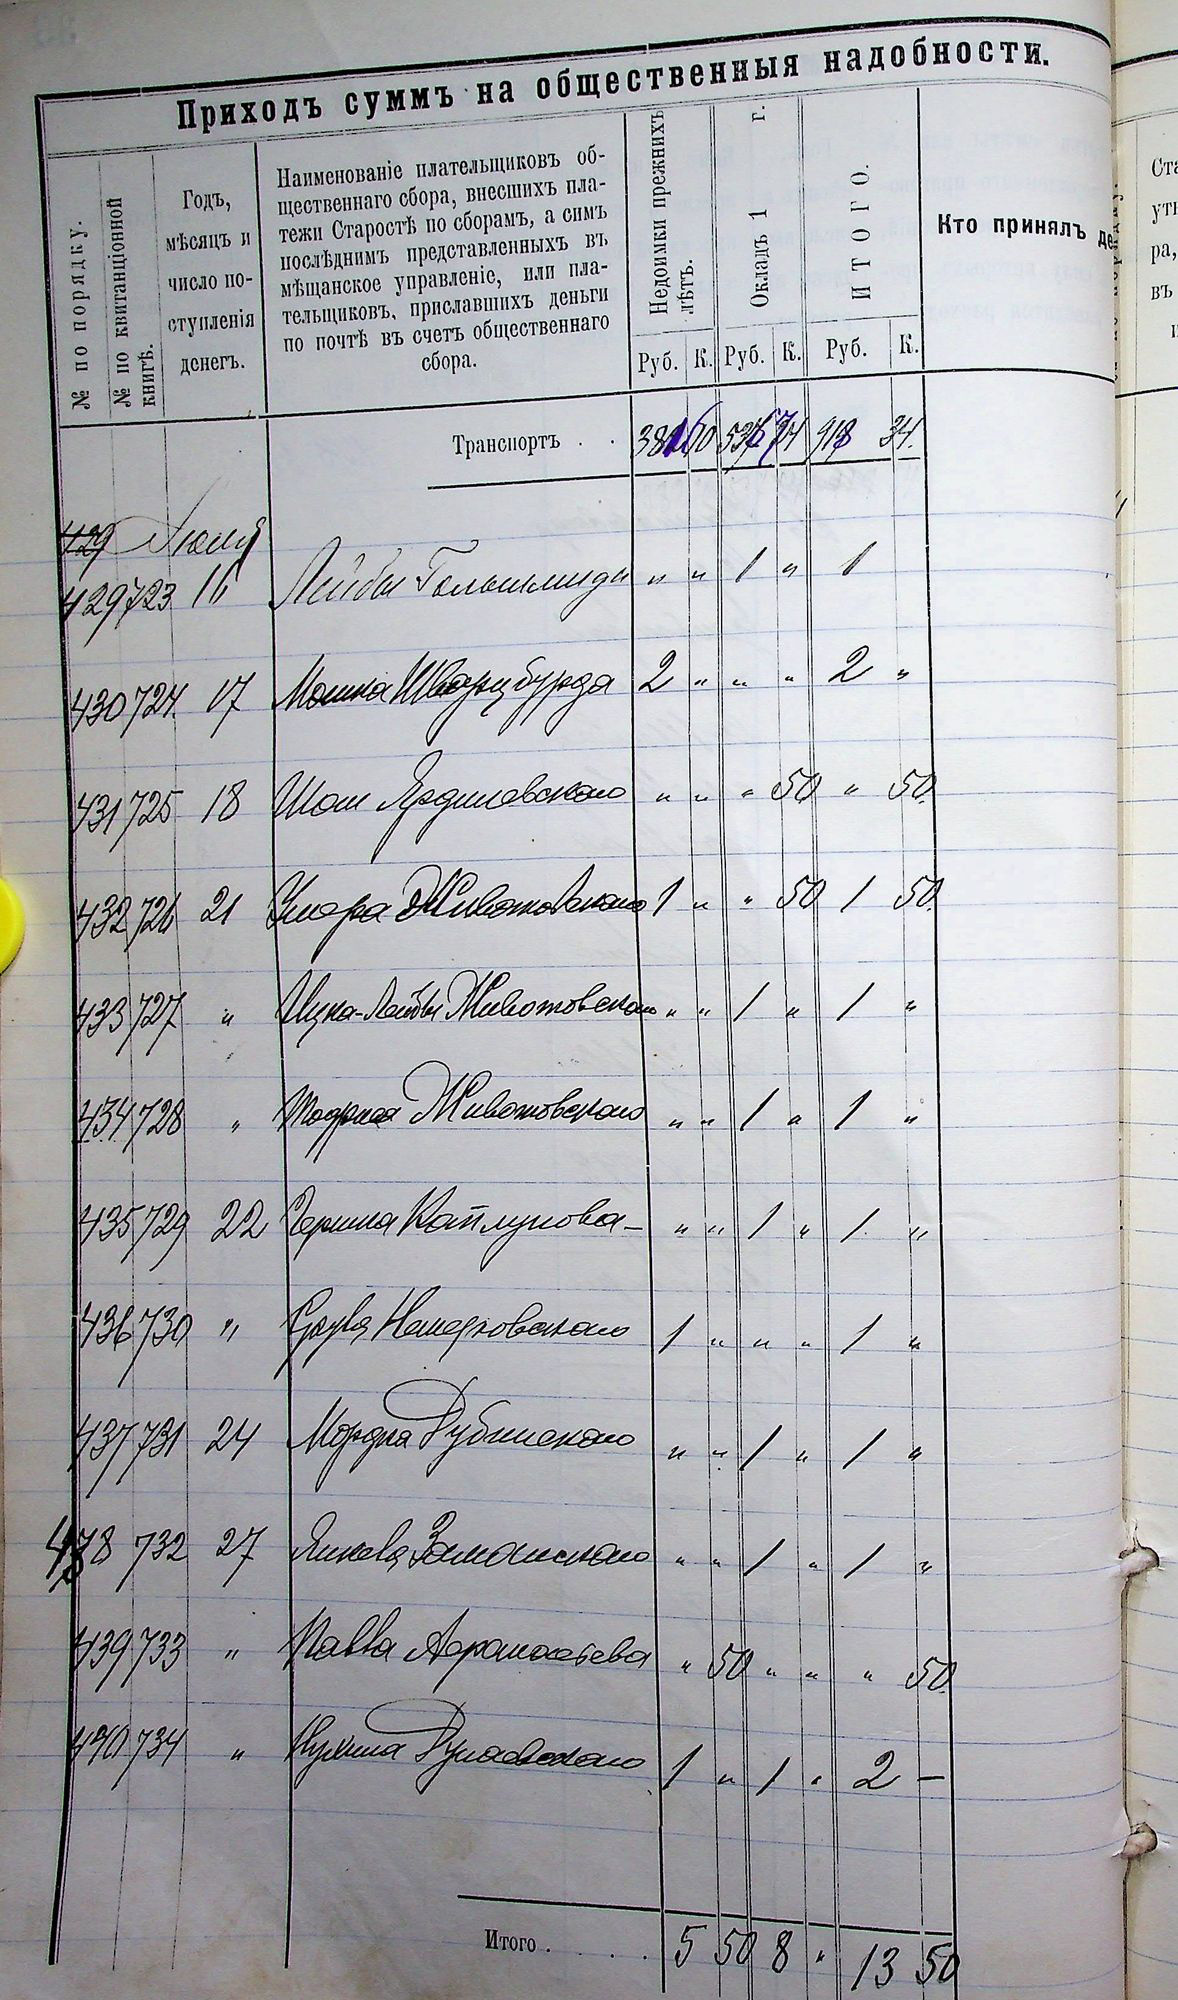 Приходъ суммъ на общественныя надобности.
№ по порядку.
№ по квитанціонной книгѣ.
Годъ,
мѣсяцъ и
число по-
ступленія
денегъ.
Наименованіе плательщиковъ об-
щественнаго сбора, внесшихъ пла-
тежи Старостѣ по сборамъ, а симъ
послѣднимъ представленныхъ въ
мѣщанское управленіе, или пла-
тельщиковъ, приславшихъ деньги
по почтѣ въ счетъ общественнаго
сбора.
Недоимки прежнихъ
лѣтъ.
Окладъ 1 г.
ИТОГО.
Кто принялъ де
Руб. К. Руб. К. Руб. К.
Транспортъ . . 918 34.
429 Іюль
429 723 16 Лейбы Гольшмида " " 1 " 1
430 724 17 Мошка Шварцбурда 2 " " " 2 "
431 725 18 " " " 50 " 50
432 726 21 Умера Животовскаго 1 " " 50 1 50
433 727 " Ицка-Лейбы Животовскаго " " 1 " 1 "
434 728 " Животовскаго " " 1 " 1 "
435 729 22 " " 1 " 1 "
436 730 " 1 " " " 1 "
437 731 24 Мордка Дубинскаго " " 1 " 1 "
438 732 27 Янкеля Заманскаго " " 1 " 1 "
439 733 " " 50 " " " 50
440 734 " 1 " 1 " 2 —
Итого . . . . 5 50 8 " 13 50
Ста
ра,
въ